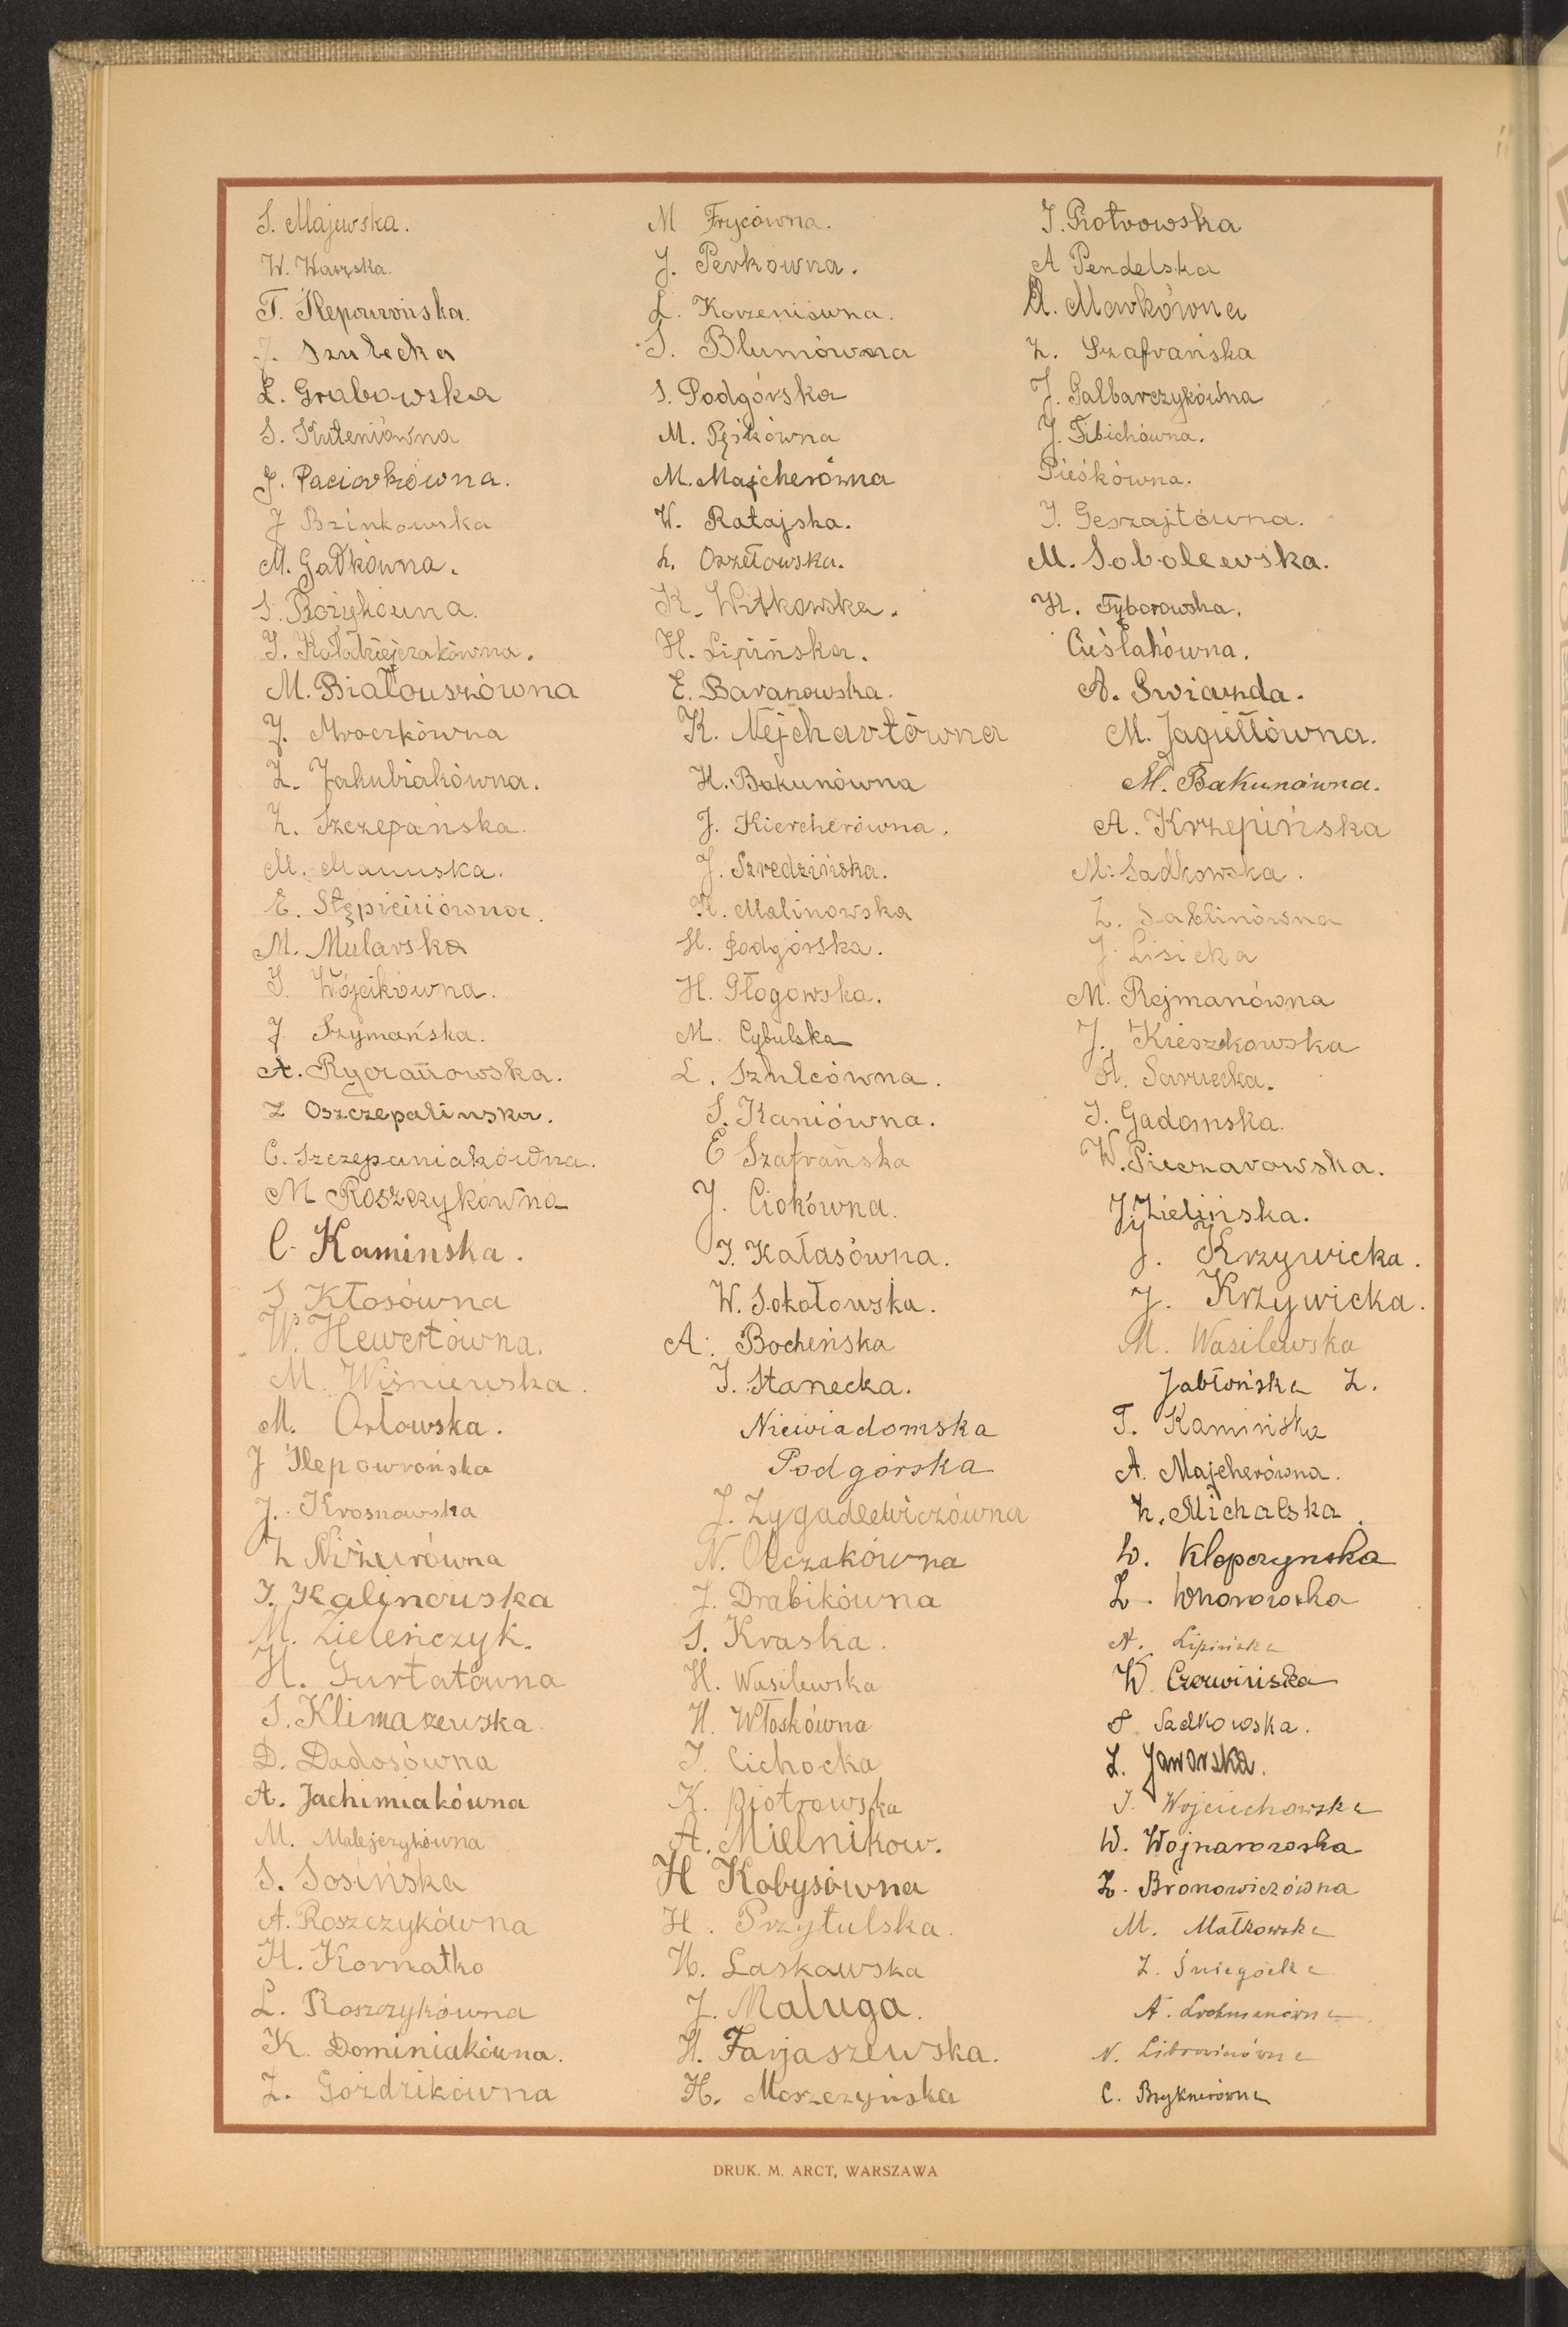 S. Majewska.
W. Warzska.
T. Ślepowrońska.
J. Szulecka
L. Grabowska
S. Kuteniówna
J. Paciorkówna.
J Brinkowska
M. Gałkówna.
S. Bożykówna.
J. Kołodziejczakówna.
M. Białouszówna
J. Mroczkówna
Z. Jakubiakówna.
Z. Szczepańska.
M.
E. Stępieniówna.
M. Mularska
J. Wójcikówna.
J Szymańska.
A.
Z Oszczepalinska.
C. Szczepaniakówna.
M Roszczykówna
C. Kaminska.
S. Kłosówna
W. Hewertówna.
M. Wiśniewska.
M. Orłowska.
J Ślepowrońska
J. Krosnowska
Z Niziurówna
J. Kalinowska
M. Zieleńczyk.
H. Gurtatówna
S. Klimaszewska
D. Dadosówna
A. Jachimiakówna
M. Malejczykówna
S. Sosińska
A. Roszczykówna
H. Kornatko
L. Roszczykówna
K. Dominiakówna.
Z. Goździkówna
M Frycówna.
J. Perkówna.
L. Korzeniówna.
S. Blumówna
S. Podgórska
M. Pęśkówna
M. Majcherówna
W. Ratajska.
L. Orzełowska.
K. Witkowska.
H. Lipińska.
E. Baranowska.
K. Nejchartówna
H. Bakunówna
J. Kiercherówna.
J. Szredzińska.
H. Malinowska
H. Podgórska.
H. Głogowska.
M. Cybulska
L. Szulcówna.
S. Kaniówna.
E Szafrańska
J. Ciokówna.
J. Kałasówna.
W. Sokołowska.
A. Bocheńska
J. Stanecka.
Niewiadomska
Podgórska
J. Zygadlewiczówna
N. Olczakówna
J. Drabikówna
S. Kraska.
H. Wasilewska
H. Włoskówna
J. Cichocka
K. Piotrowska
A. Mielnikow.
H Kobysówna
H. Przytulska.
H. Laskowska
J. Maluga.
H. Farjaszewska.
H. Moszczyńska
J. Piotrowska
A Pendelska
A. Markówna
Z. Szafrańska
J. Galbarczykówna
J. Fibichówna.
Pieśkówna.
J. Geszajtówna.
M. Sobolewska.
H. Tyborowska.
Cieślakówna.
A. Swiazda.
M. Jagiełłówna.
M. Bakunówna.
A. Krzepińska
M. Sadkowska.
Z. Sablinówna
J. Lisicka
M. Rejmanówna
J. Kieszkowska
A. Sarnecka.
J. Gadomska.
W. Pieczarowska.
J. Zielińska.
J. Krzywicka.
J. Krzywicka.
M. Wasilewska
Jabłońska Z.
T. Kamińska
A. Majcherówna.
Z. Michalska.
W. Klopczynska
Z. Wnorowska
A. Lipińska
W. Czerwińska
S. Sadkowska.
Z. Jaworska.
J. Wojciechowska
W. Wojnarowska
Z. Bronowiczówna
M. Małkowska
Z. Śniegocka
A.
N. Librowiczówna
C. Bryknerówna
DRUK. M. ARCT, WARSZAWA